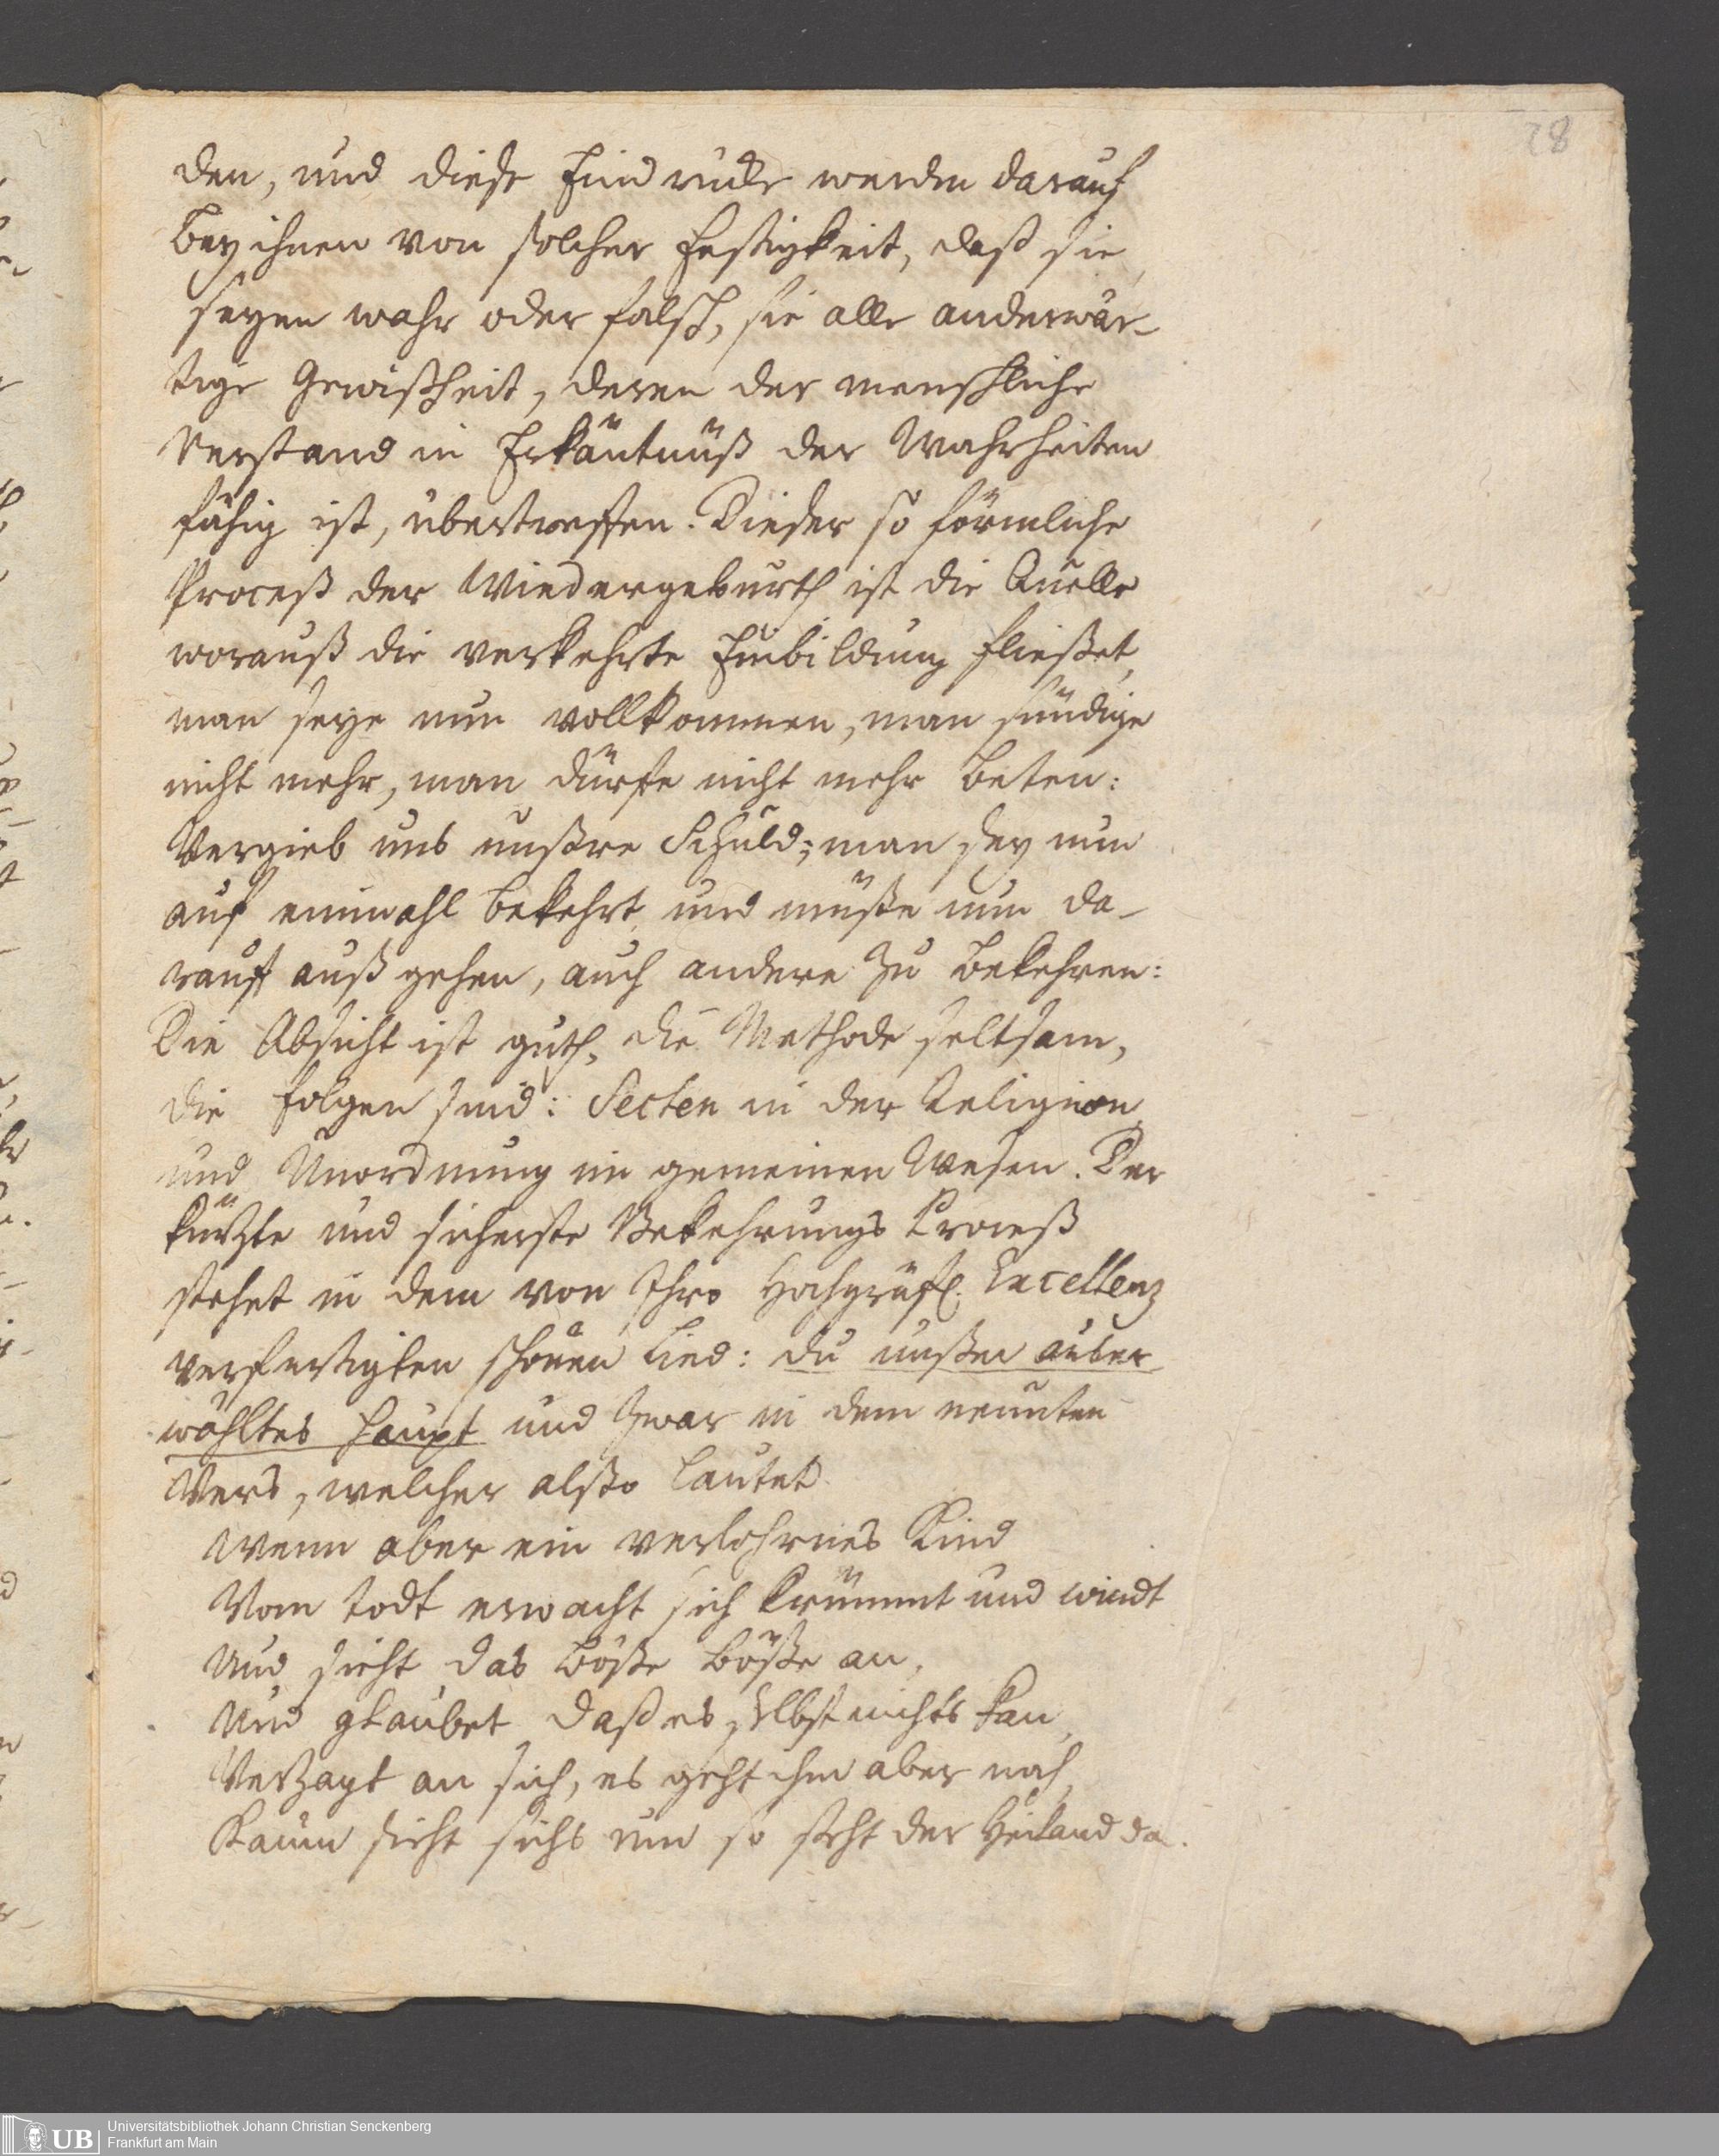 28
den, und diese Eindrücke werden darauf
bey ihnen von solcher Festigkeit, daß sie,
seyen wahr oder falsch, sie alle anderwär-
tige Gewißheit, deren der menschliche
Verstand in Erkäntnüß der Wahrheiten
fähig ist, übertreffen. Dieser so förmliche
Proceß der Wiedergeburth ist die Quelle
worauß die verkehrte Einbildung fließet,
man seye nun vollkommen, man sündige
nicht mehr, man dürfe nicht mehr beten:
Vergieb uns unßre Schuld; man sey nun
auf einmahl bekehrt, und müße nun da-
rauf auß gehen, auch andere zu bekehren:
Die Absicht ist guth, die Methode seltsam,
die Folgen sind: Secten in der Religion,
und Unordnung im gemeinen Wesen. Der
kürtzte und sicherste Bekehrungs Proceß
stehet in dem von Ihro Hochgräfl. Excellenz
verfertigten schönen Lied: du unßer auser
wähltes Haupt und zwar in dem neunten
Vers, welcher alßo lautet
Wenn aber ein verlohrnes Kind
Vom todt erwacht sich krümmt und windt
Und sieht das böße böße an,
Und glaubet daß es selbst nichts kan,
Verzagt an sich, es geht ihm aber nah,
Kaum sieht sichs um so steht der Heiland da.
UB
Universitätsbibliothek Johann Christian Senckenberg
Frankfurt am Main